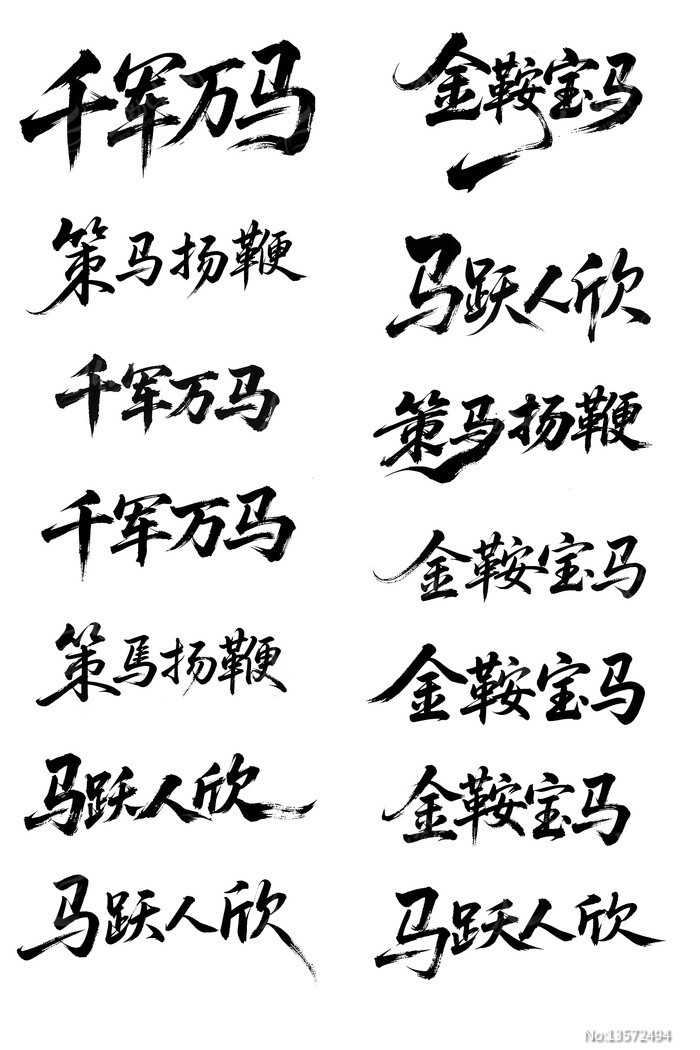 千军万马
策马扬鞭
千军万马
千军万马
策馬扬鞭
马跃人欣
马跃人欣
金鞍宝马
马跃人欣
策马扬鞭
金鞍宝马
金鞍宝马
金鞍宝马
马跃人欣
No:13572494